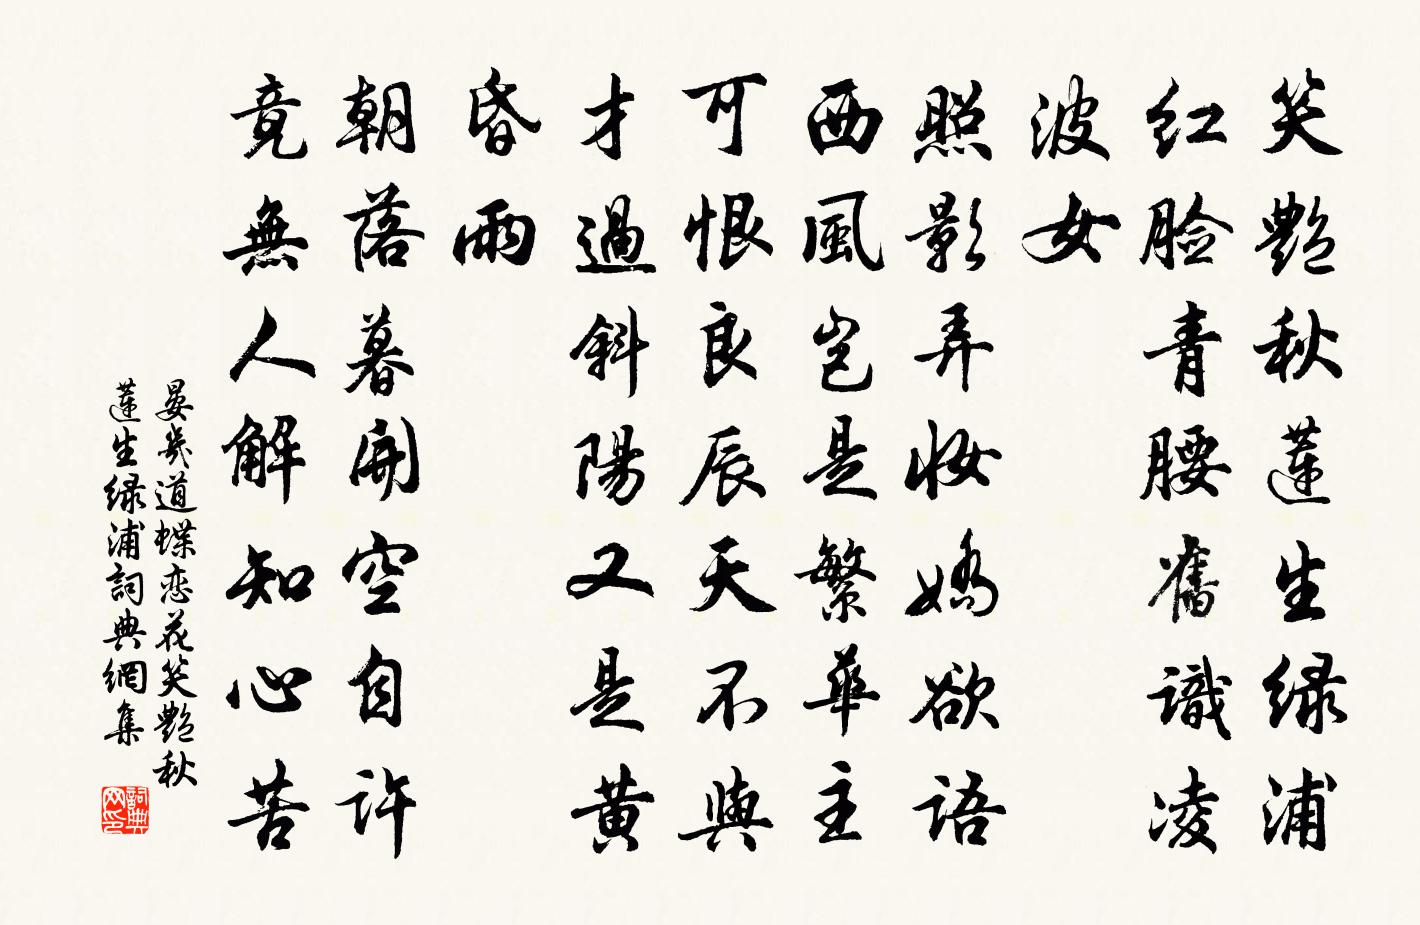 笑艷秋蓮生绿浦
红脸青腰舊識凌
波女
照影弄妆嬌欲語
西風豈是繁華主
可恨良辰天不與
才過斜陽又是黄
昏雨
朝落暮開空自許
竟無人解知心苦
晏幾道蝶恋花笑艷秋
蓮生绿浦詞典網集
詞典
网印